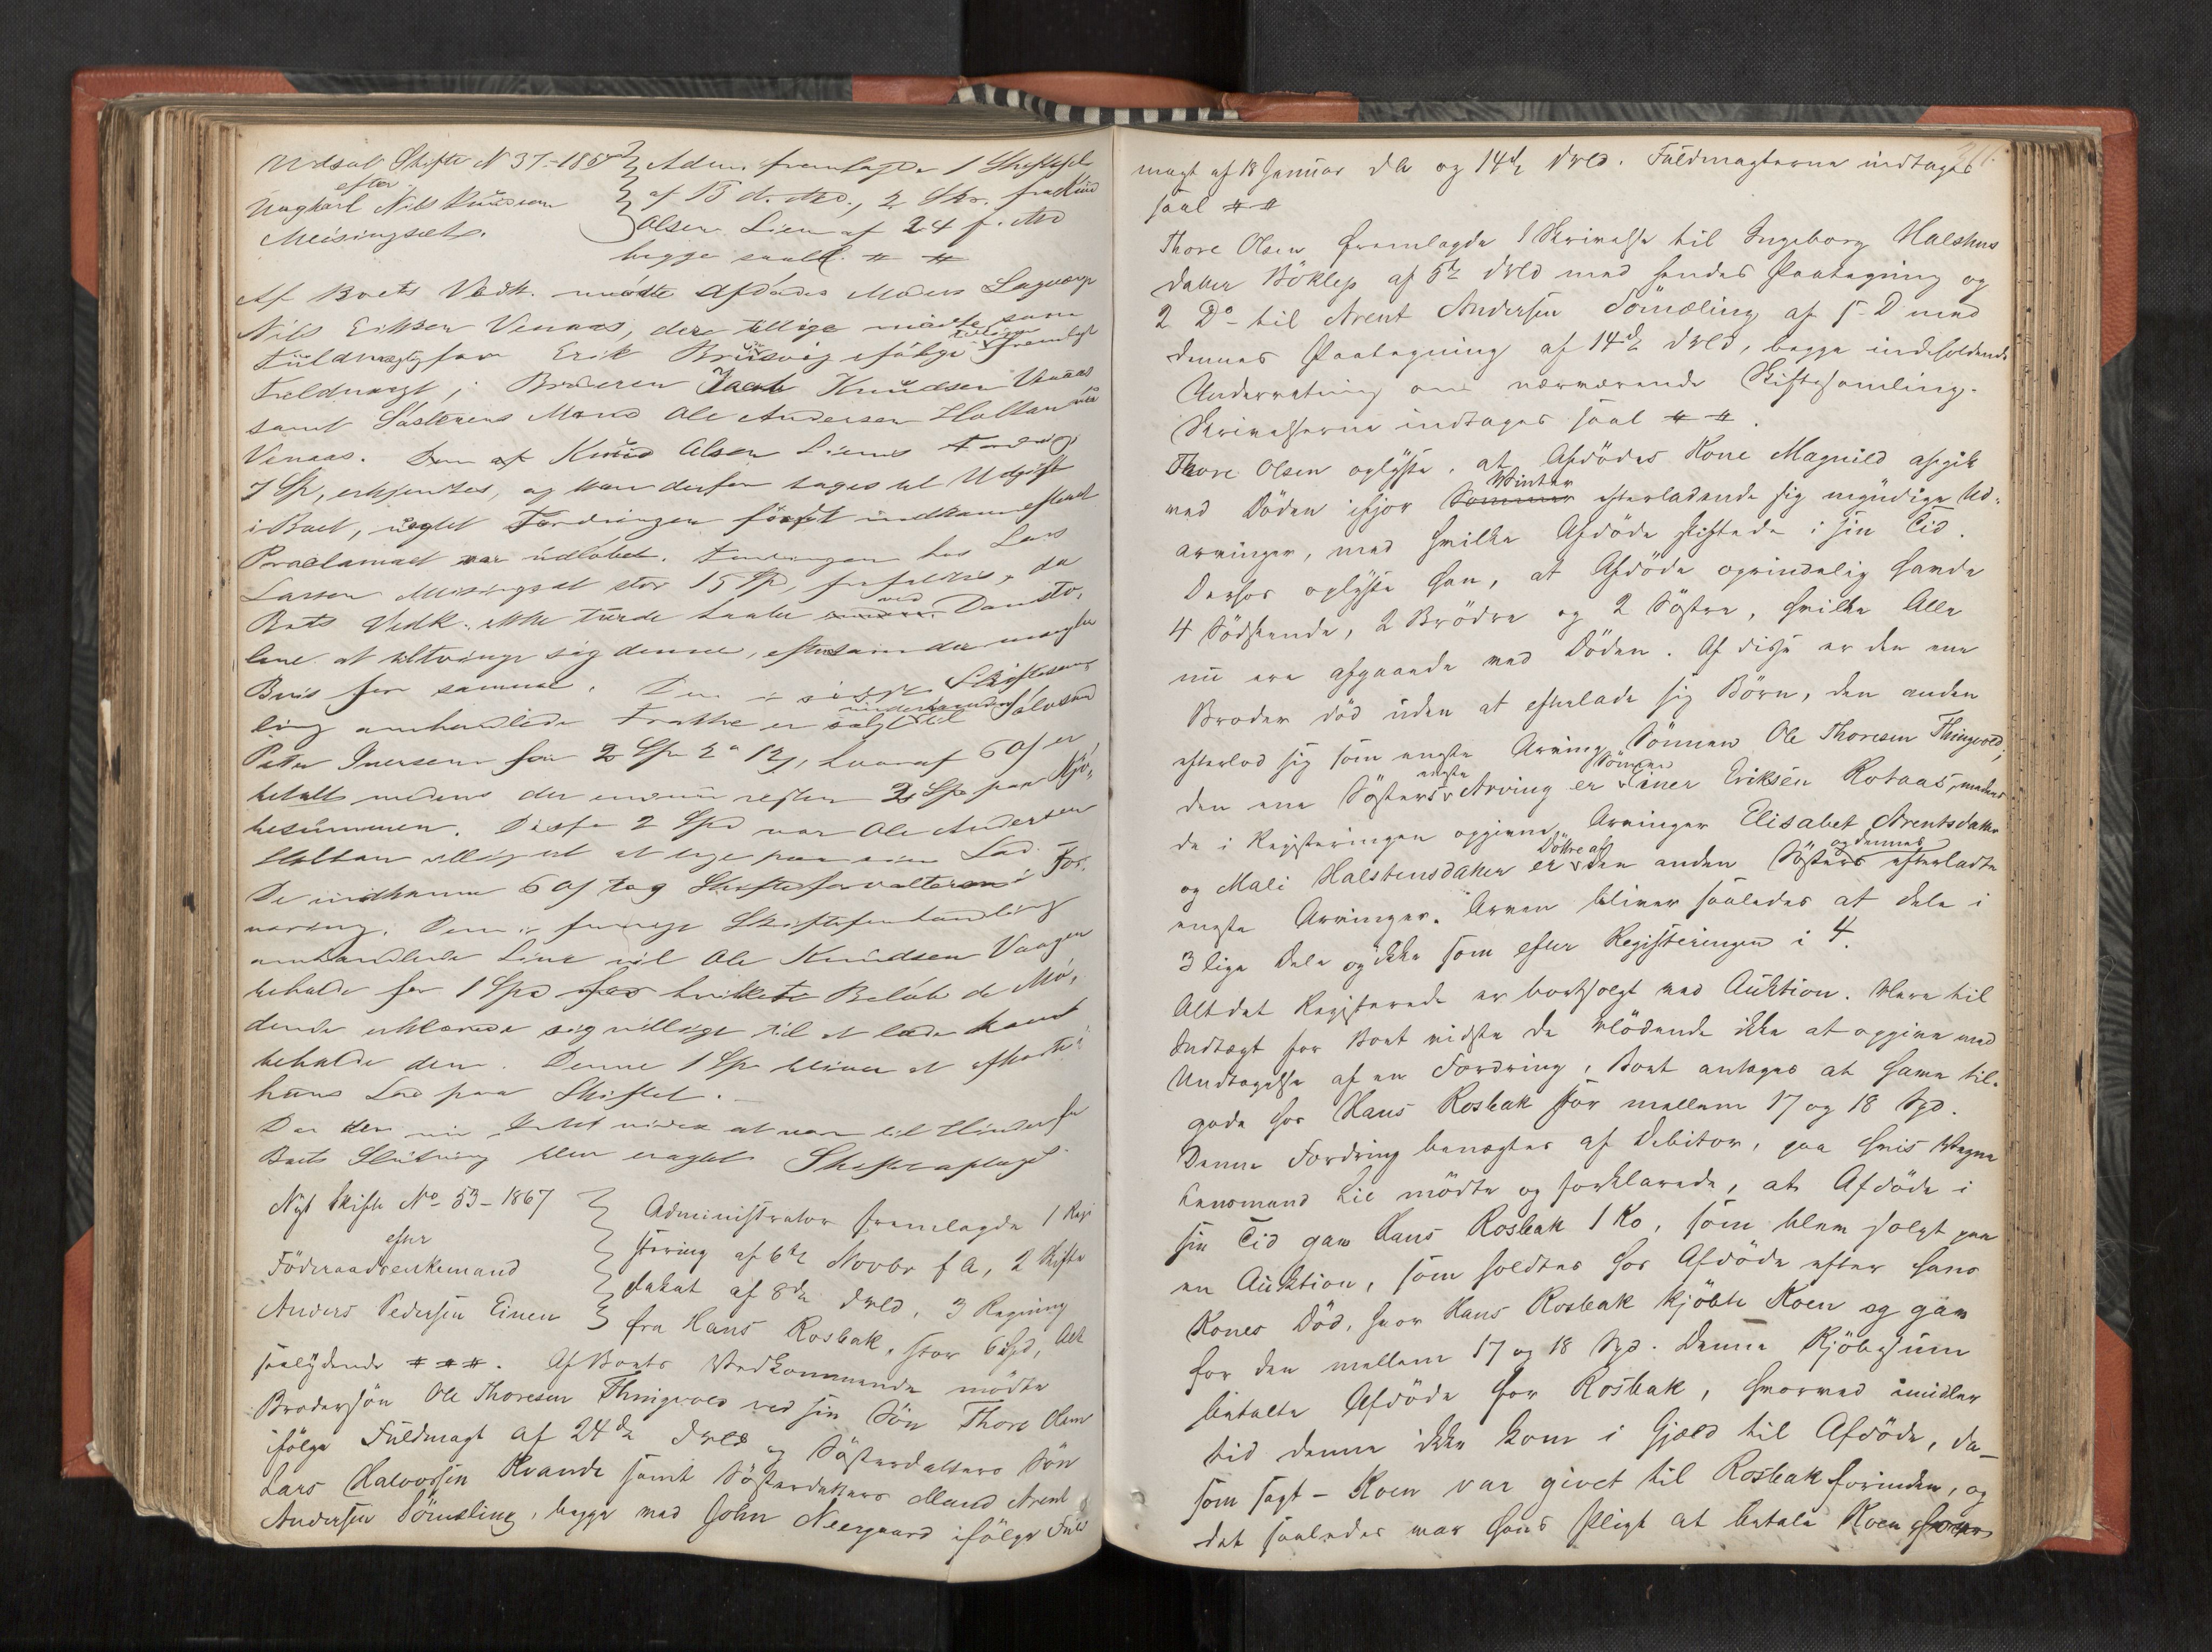 Udsat Skifte N 37-1867
efter
Ungkarl Nils Knudsen
Meisingset.
Adm. fremlagde 1 Skiftesk
af 13 d. Md., 2 Skr. fra Knud
Olsen Lien af 24 f. Md
begge saal. # #
Af Boets Vedk. mødte Afdødes Moders Laugværge
Nils Eriksen Venaas, der tillige mødte som
Fuldmægtig for Erik Brusvig ifølge tidligere fremlagt
Fuldmagt, Broderen Jacob Knudsen Venaas
samt Søsterens Mand Ole Andersen Holtan
Venaas. Den af Knud Olsen Liens Fordring
7 Sp, erkjendtes, og kan derfor tages til Udgift
i Boet, uagtet Fordringen først indkom efterat
Proclamaet var udløbet. Fordringen hos Lars
Larsen Meisingset stor 15 Sp, frafaldtes, da
Boets Vedk. ikke turde haabe ved Domsto-
lene at tiltvinge sig denne, eftersom der mangler
Bevis for samme. Den i sidste Skiftesam-
ling omhandlede Frakke er solgt underhaanden til
Peter Iversen for 2 Sp 2 " 12 , hvoraf 60 er
betalt medens der endnu rester 2 Sp paa Kjø-
besummen. Disse 2 Spd var Ole Andersen
Holtan villig til at tage paa sin Lod.
De indkomne 60 tog Skifteforvalteren i For-
varing. Den i forrige Skifteforhandling
omhandlede vil Ole Knudsen Vaagen
beholde for 1 Spd hvilket Beløb de Mø-
dende erklærede sig villige til at lade ham
beholde den. Denne 1 Sp bliver at afkorte i
hans Lod paa Skiftet. —
Da der nu Intet videre at var til Hinder for
Boets Slutning blev eragtet Skifte optaget
Nyt Skifte No 53-1867
efter
Föderaadsenkemand
Anders Pedersen Einen
Administrator fremlagde 1 Regi
strering af 6te Novbr f A, 2 Skifte
dekret af 8de dsld, 3 Regning
fra Hans Rosbak, stor 6 Spd, Alt
saalydende # # #. Af Boets Vedkommende mødte
Brodersøn Ole Thoresen Thingvold ved sin Søn Thore Olsen
ifølge Fuldmagt af 24de dsld og Søsterdatters Søn
Lars Halvorsen Kvande samt Søsterdatters Mand Arent
Andersen Sömæling, begge med John Neergaard ifølge Fuld
magt af 18 Januar dA og 14de dsld. Fuldmagterne indtages
saal # #
Thore Olsen fremlagde 1 Skrivelse til Ingeborg Halstens
datter Böklep af 5te dsld med hendes Paategning og
2 Do til Arent Andersen Sömæling af 5 D med
dennes Paategning af 14de dsld, begge indeholdende
Underretning om nærværende Skiftesamling.
Skrivelserne indtages saal # #.
Thore Olsen oplyste, at Afdødes Kone Magnild afgik
ved Döden ifjor Sommer Vinter efterladende sig myndige Ud-
arvinger, med hvilke Afdøde skiftede i sin Tid.
Derhos oplyste han, at Afdøde oprindelig havde
4 Södskende, 2 Brödre og 2 Söstre, hvilke Alle
nu ere afgaaede ved Döden. Af disse er den ene
Broder död uden at efterlade sig Börn, den anden
efterlod sig som eneste Arving Sönnen Ole Thoresen Thingvold,
den ene Søsters eneste Arving er Sönnen Einer Eriksen Rotaas, medens
de i Registeringen opgivne Arvinger Elisabet Arentsdatter
og Mali Halstensdatter er Döttre af den anden Søster og dennes efterladte
eneste Arvinger. Arven bliver saaledes at dele i
3 lige Dele og ikke som efter Registeringen i 4.
Alt det Registerede er bortsolgt ved Auktion. Mere til
Indtægt for Boet vidste de Mödende ikke at opgive med
Undtagelse af en Fordring, Boet antages at have til-
gode hos Hans Rosbak stor mellem 17 og 18 Spd.
Denne Fordring benægtes af Debitor, paa hvis Vegne
Lensmand Lie mödte og forklarede, at Afdøde i
sin Tid gav Hans Rosbak 1 Ko, som blev solgt paa
en Auktion, som holdtes hos Afdøde efter hans
Kones Död, hvor Hans Rosbak kjöbte Koen og gav
for den mellem 17 og 18 Spd. Denne Kjöbesum
betalte Afdøde for Rosbak, hvorved imidler
tid denne ikke kom i Gjæld til Afdøde, da —
som sagt — Koen var givet til Rosbak forinden, og
det saaledes var hans Pligt at betale Koen